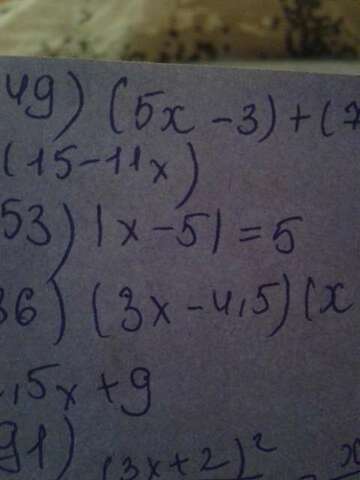 49) (5x - 3) + (7
(15 - 11x)
53) |x - 5| = 5
36) (3x - 4,5)(x
,5x + 9
91) (3x + 2)² x